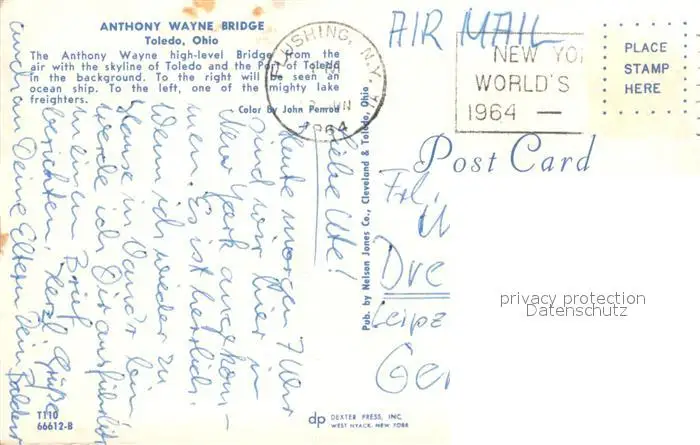 ANTHONY WAYNE BRIDGE
Toledo, Ohio
The Anthony Wayne high-level Bridge from the
air with the skyline of Toledo and the Port of Toledo
in the background. To the right will be seen an
ocean ship. To the left, one of the mighty lake
freighters.
Color By John Penrod
FLUSHING, N.Y.
1964
AIR MAIL
NEW YO
WORLD'S
1964 —
PLACE
STAMP
HERE
Post Card
Liebe Ute!
Heute morgen 7 Uhr
sind wir hier in
New York angekom-
men. Es ist herrlich.
Wenn ich wieder zu
Hause in
werde ich Dir ausführlich
in einem Brief
berichten. Herzl. Grüße
auch an Deine Eltern Dein
Frl.
U
Dre
Leipz
Ger
privacy protection
Datenschutz
Pub. by Nelson Jones Co., Cleveland & Toledo, Ohio
T110
66612-B
dp DEXTER PRESS, INC.
WEST NYACK, NEW YORK